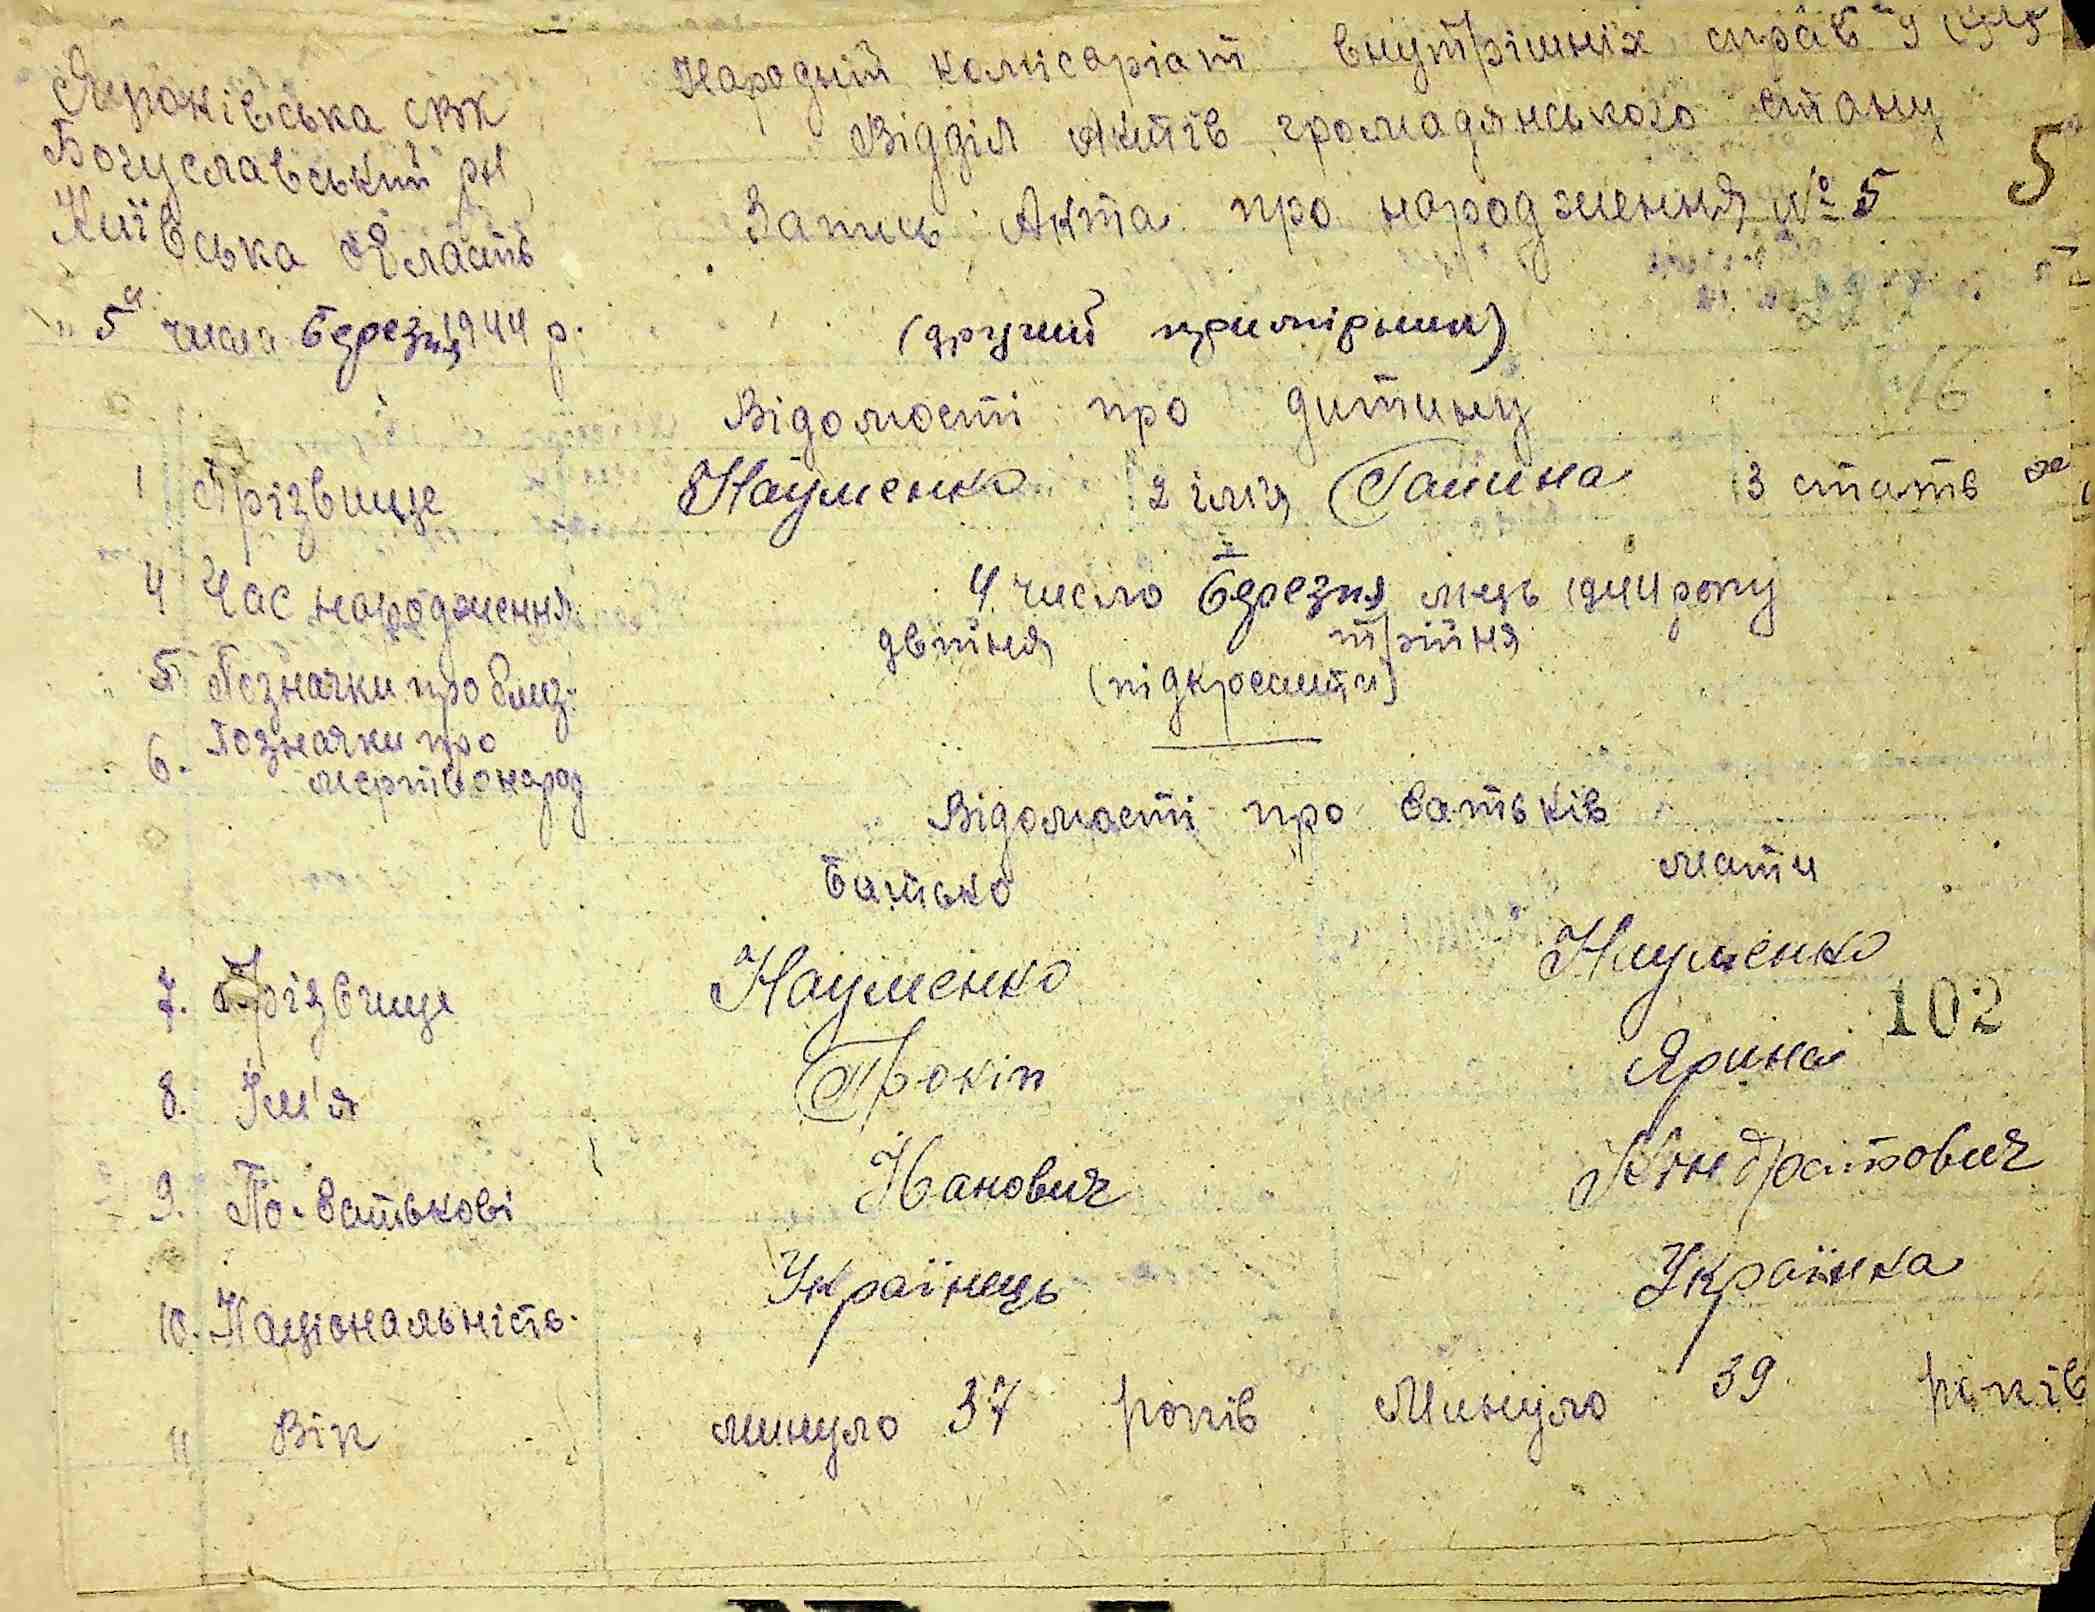 СВК
Богуславський рн
Київська область
"5" числа Березня 1944 р.
Народній комісаріат внутрішніх справ
Відділ Актів громадянського стану
Запись Акта про народження № 5
5
(другий примірник)
Відомості про дитину
16
1 Прізвище Науменко 2 імія Галина 3 стать
4 Час народження 4 число Березня м-ць 1944 року
двійня трійня
5 Позначки про близ. (підкреслити)
6. Позначки про
мертвонарод
Відомості про батьків
Батько мати
7. Прізвище Науменко Науменко
102
8. Ім'я Прокіп Ярина
9. По-батькові Іванович Кондратович
10. Національність. Українець Українка
11 Вік минуло 37 років Минуло 39 років